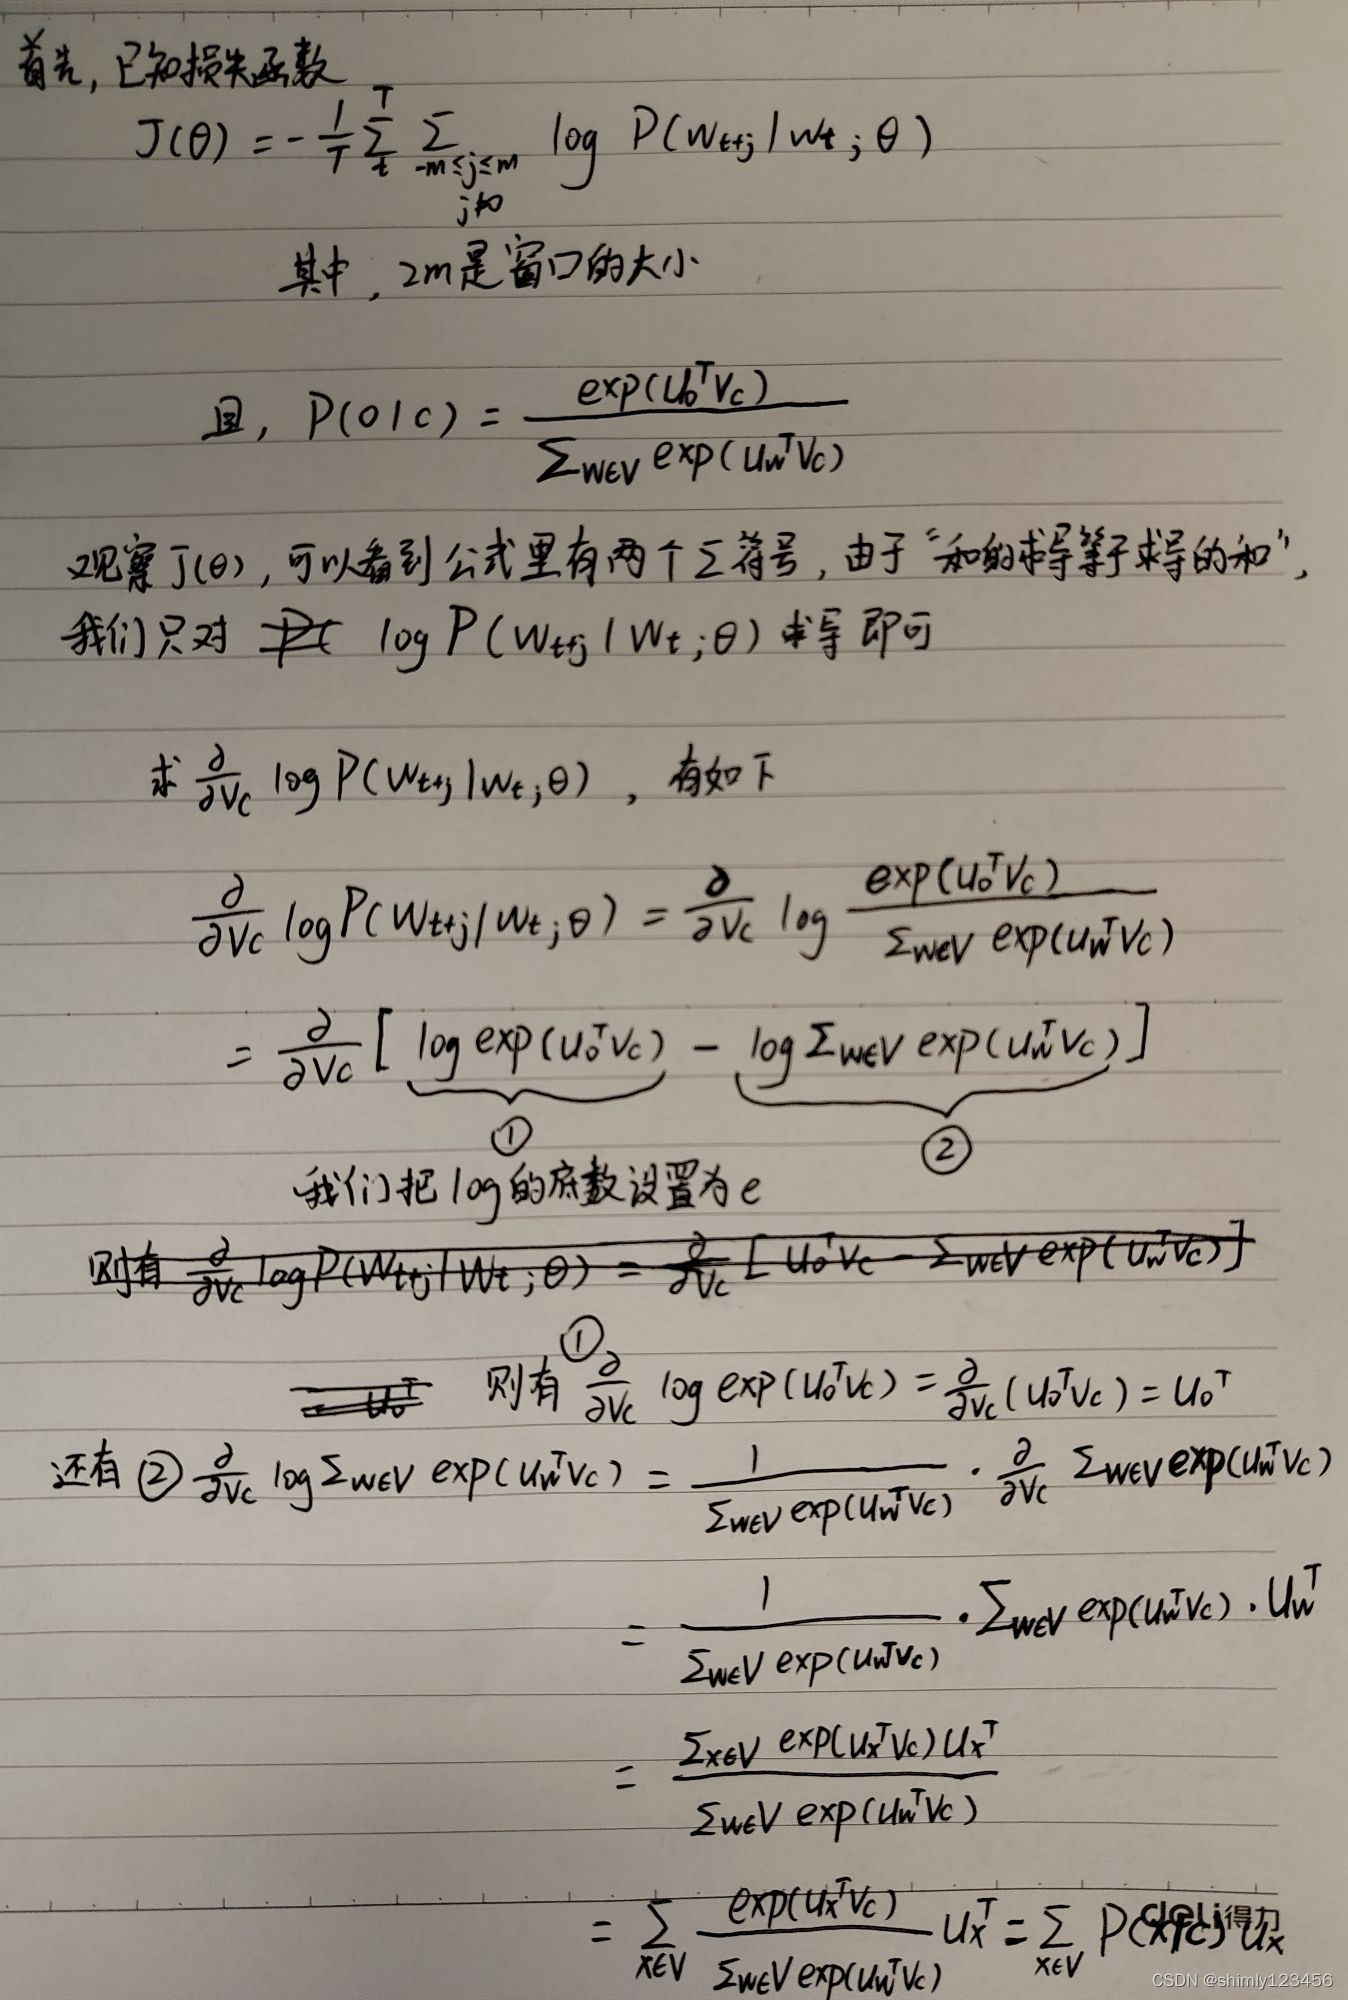 首先, 已知损失函数
J(θ) = -1/T Σ_t^T Σ_{-m≤j≤m, j≠0} log P(W_{t+j} | W_t ; θ)
其中, 2m是窗口的大小
且, P(O|C) = exp(U_o^T V_c) / Σ_{W∈V} exp(U_W^T V_c)
观察J(θ), 可以看到公式里有两个Σ符号, 由于“和的求导等于求导的和”,
我们只对 log P(W_{t+j} | W_t ; θ) 求导即可
求 ∂/∂V_c log P(W_{t+j} | W_t ; θ) , 有如下
∂/∂V_c log P(W_{t+j} | W_t ; θ) = ∂/∂V_c log exp(U_o^T V_c) / Σ_{W∈V} exp(U_W^T V_c)
= ∂/∂V_c [ log exp(U_o^T V_c) - log Σ_{W∈V} exp(U_W^T V_c) ]
① ②
我们把log的底数设置为e
则有 ∂/∂V_c log P(W_{t+j} | W_t ; θ) = ∂/∂V_c [ U_o^T V_c - Σ_{W∈V} exp(U_W^T V_c) ]
U_o^T 则有 ① ∂/∂V_c log exp(U_o^T V_c) = ∂/∂V_c (U_o^T V_c) = U_o^T
还有 ② ∂/∂V_c log Σ_{W∈V} exp(U_W^T V_c) = 1 / Σ_{W∈V} exp(U_W^T V_c) · ∂/∂V_c Σ_{W∈V} exp(U_W^T V_c)
= 1 / Σ_{W∈V} exp(U_W^T V_c) · Σ_{W∈V} exp(U_W^T V_c) · U_W^T
= Σ_{X∈V} exp(U_X^T V_c) U_X^T / Σ_{W∈V} exp(U_W^T V_c)
= Σ_{X∈V} exp(U_X^T V_c) / Σ_{W∈V} exp(U_W^T V_c) U_X^T = Σ_{X∈V} P(X|C) U_X
deli得力
CSDN @shimly123456